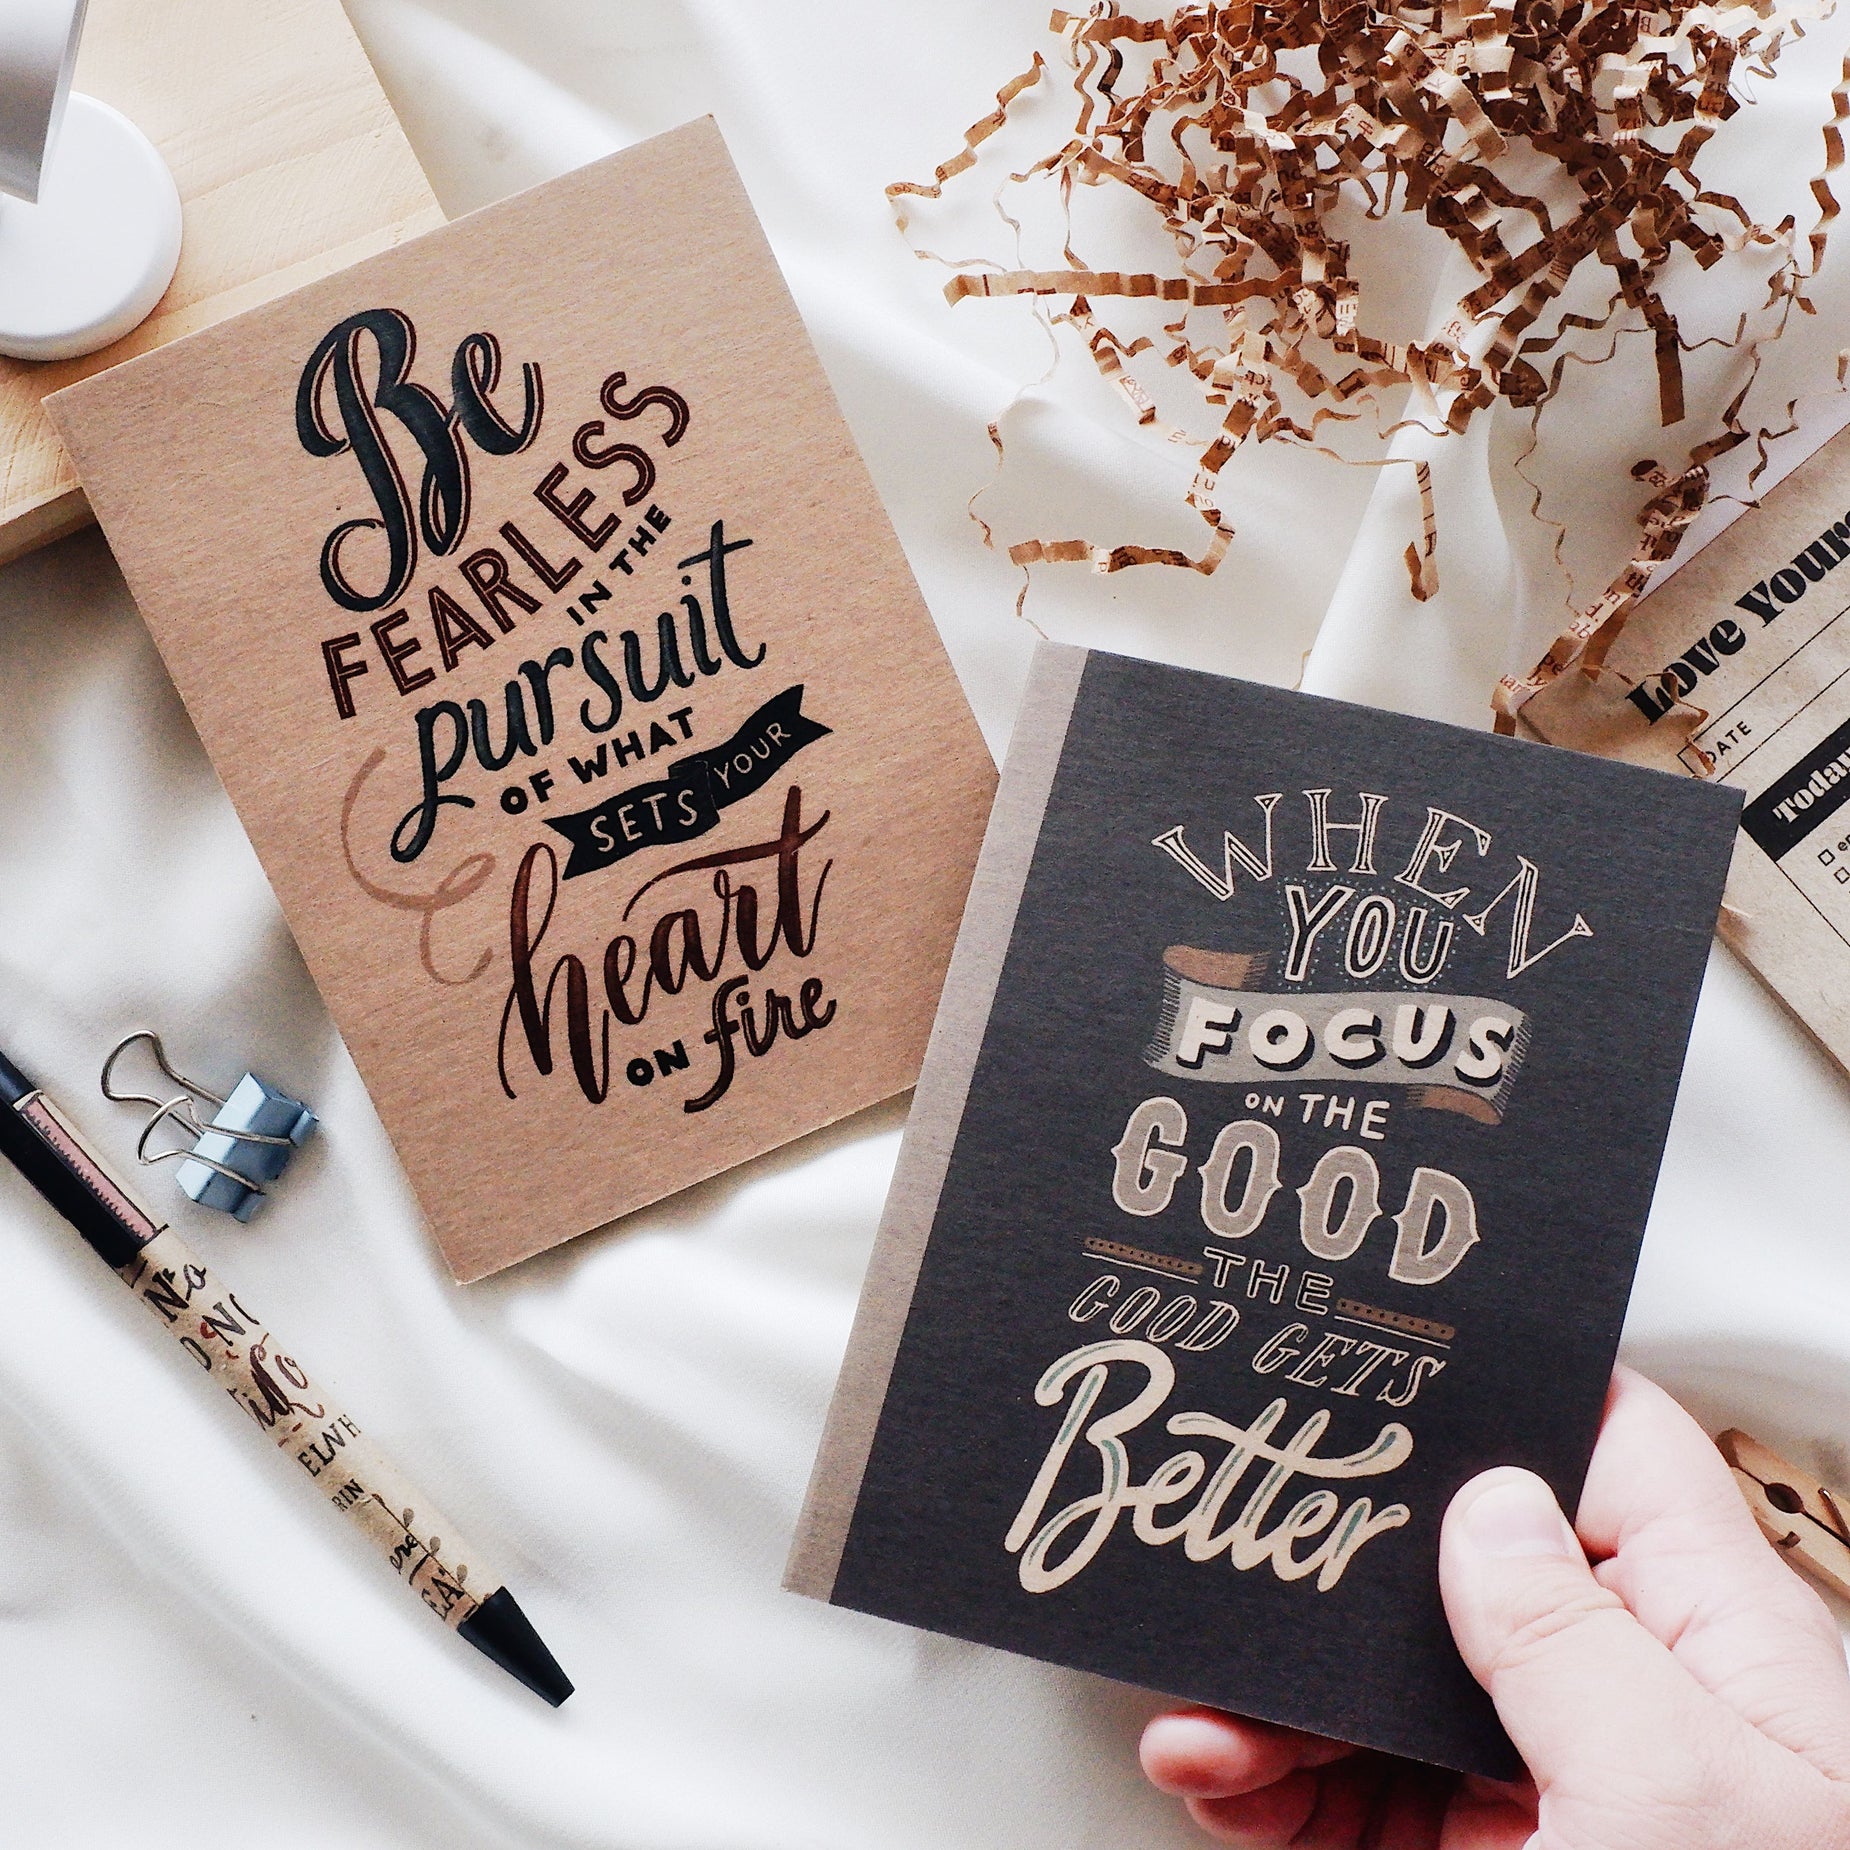 Be
FEARLESS
IN THE
pursuit
OF WHAT
SETS YOUR
heart
ON fire
WHEN
YOU
FOCUS
ON THE
GOOD
THE
GOOD GETS
Better
Love
DATE